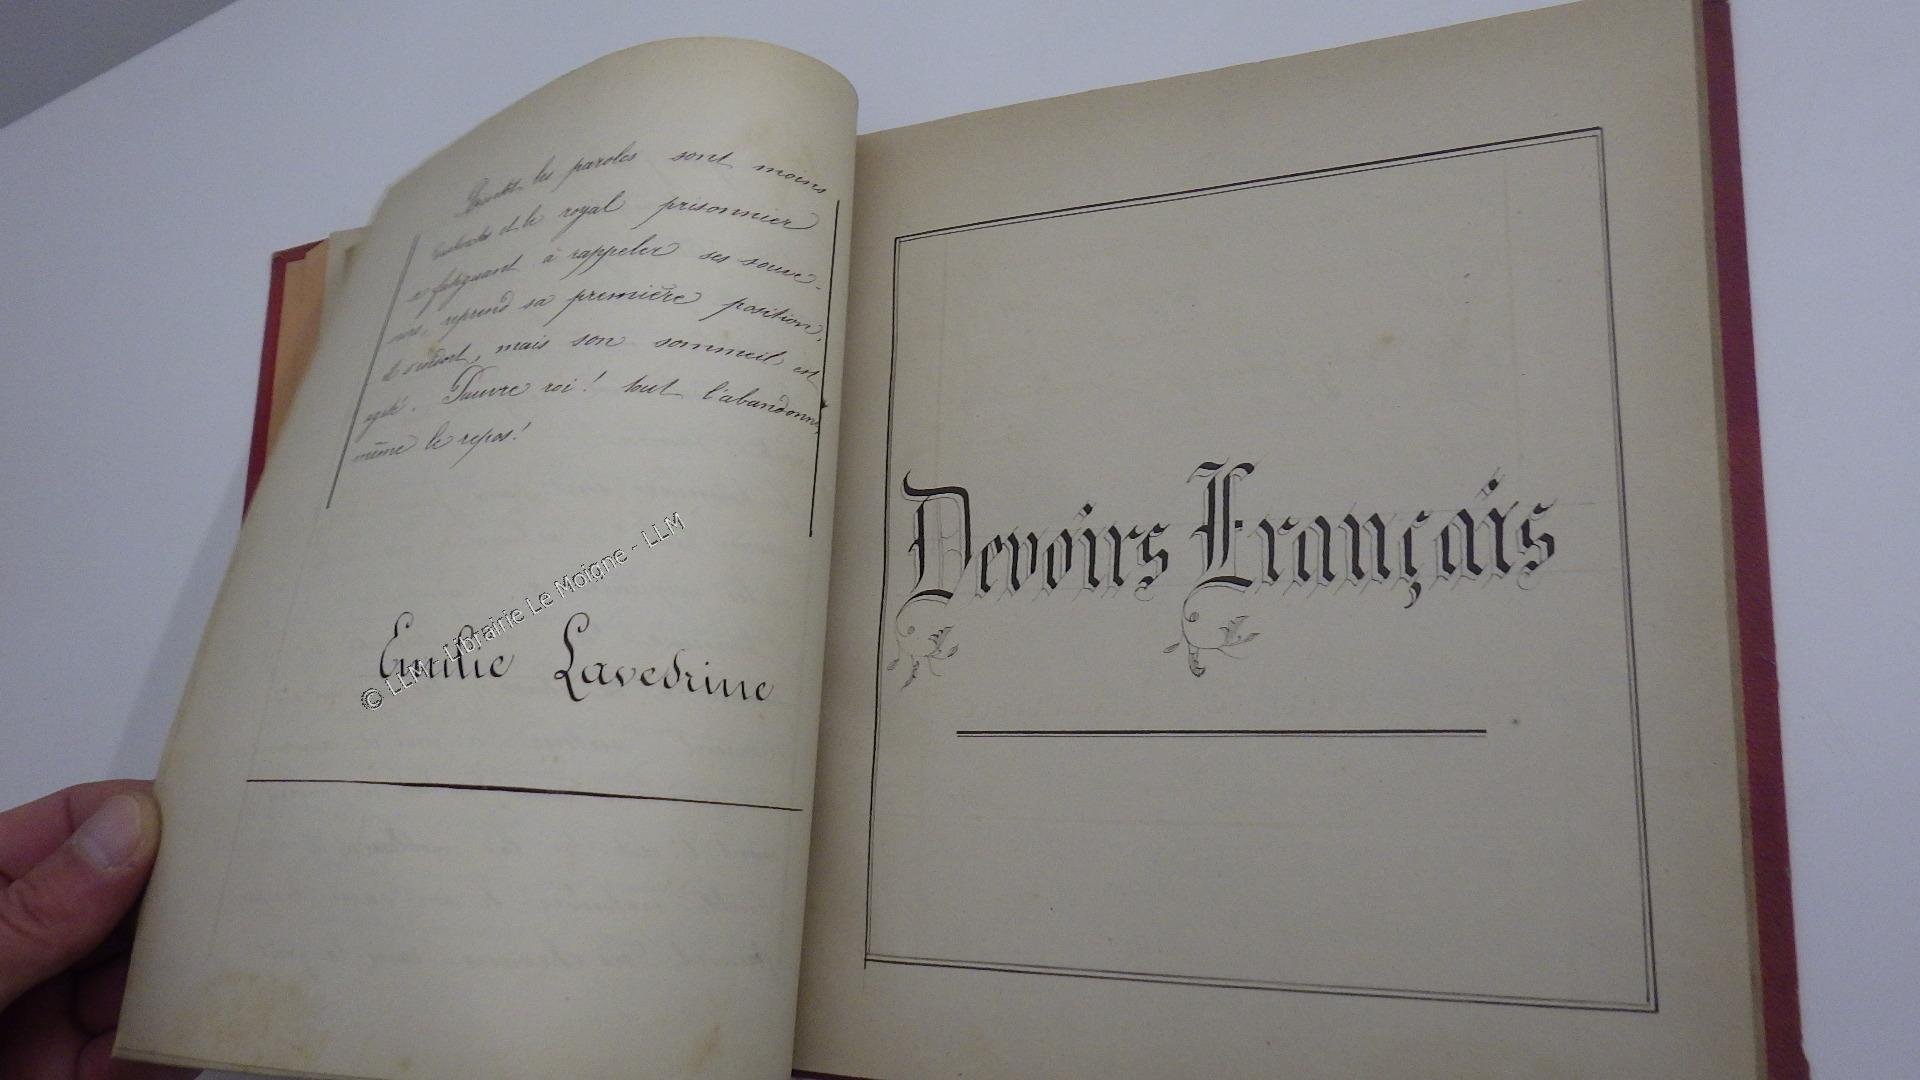 Bientôt les paroles sont moins
et le royal prisonnier
se fatiguant à rappeler ses souve-
nirs, reprend sa première position,
et s'endort, mais son sommeil est
agité. Pauvre roi! tout l'abandonne,
même le repos!
Emilie Lavedrine
© LLM - Librairie Le Moigne - LLM
Devoirs Français